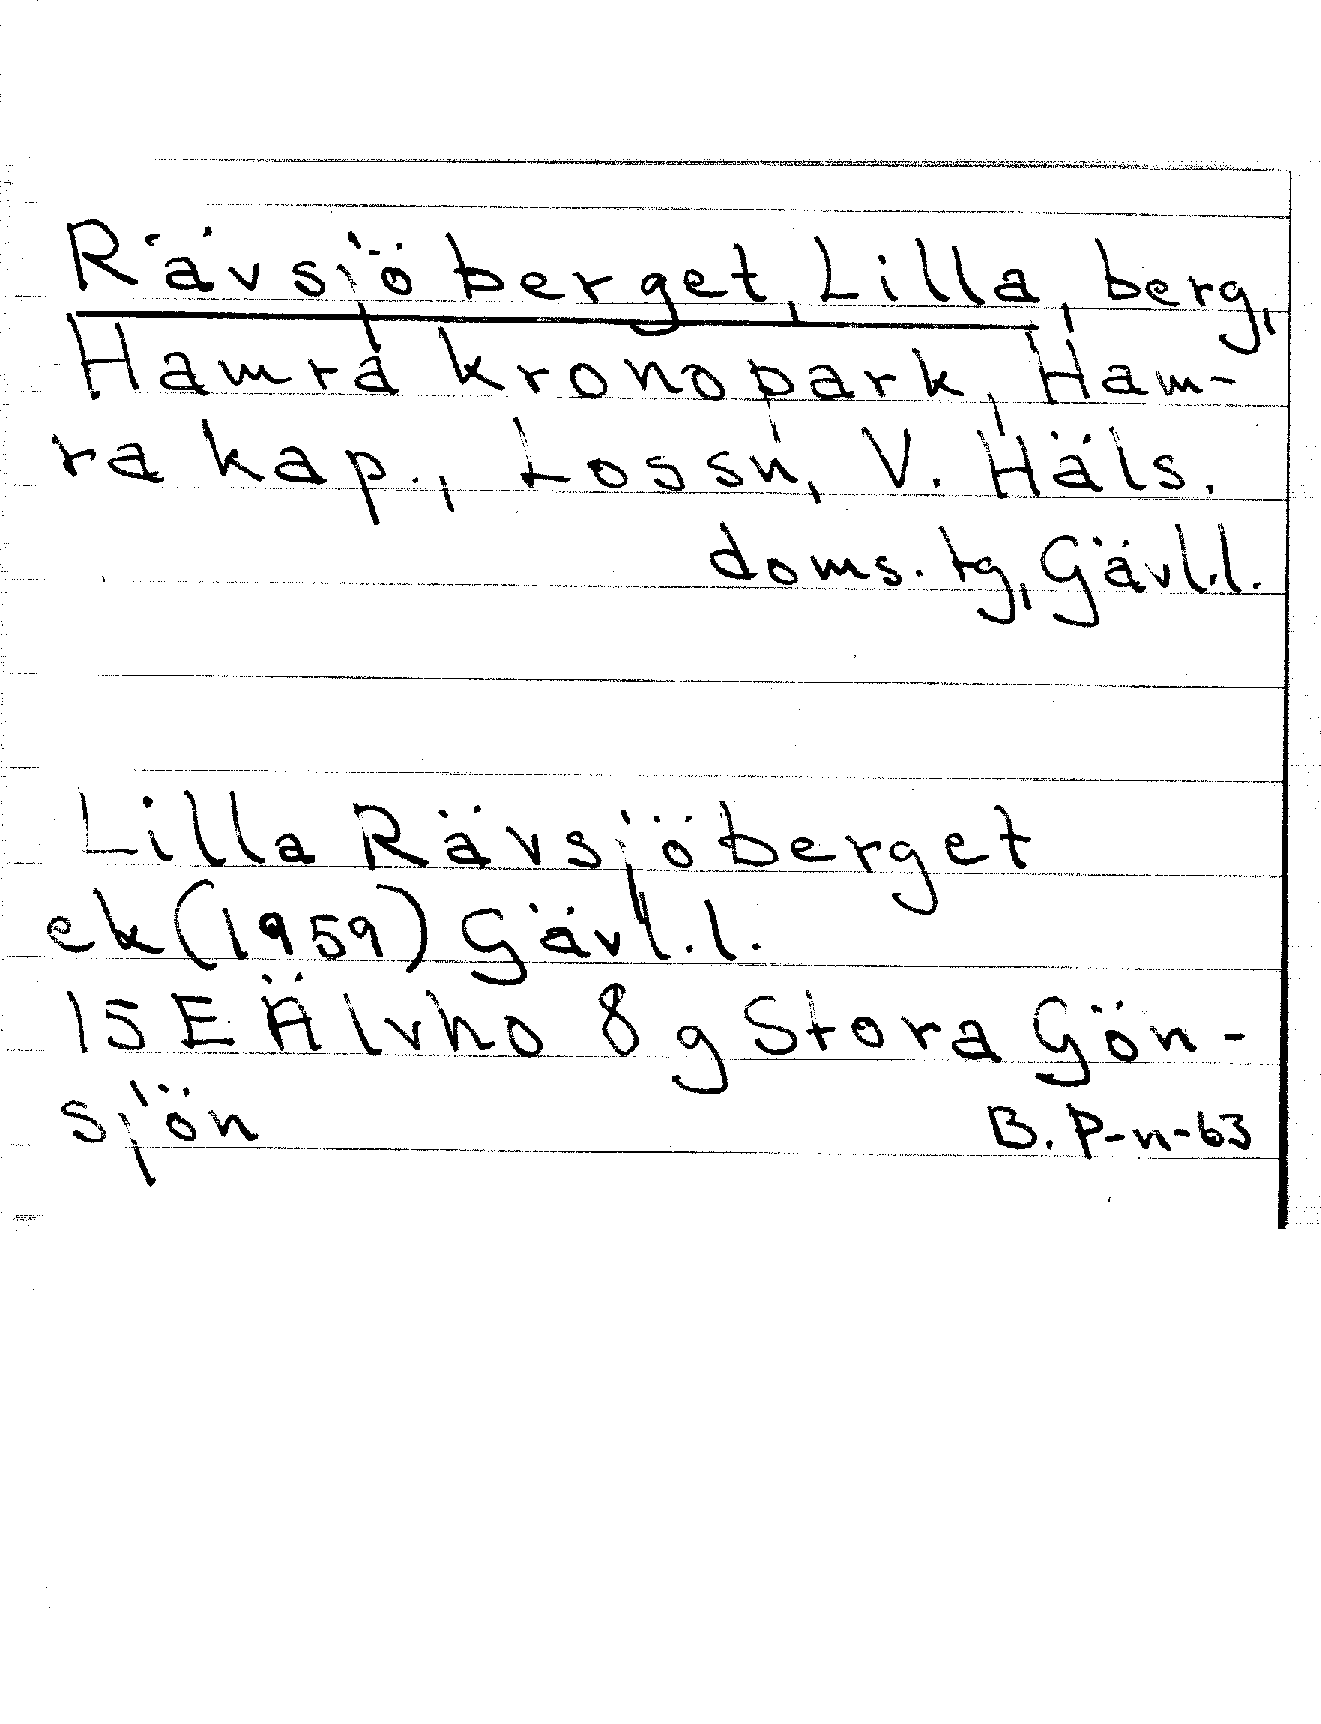 Rävsjöberget, Lilla, berg,
Hamra kronopark, Ham-
ra kap., Lossn, V. Häls.
doms. tg, Gävl.l.
Lilla Rävsjöberget
ek (1959) Gävl.l.
15 E Älvho 8 g Stora Gön-
sjön B. P-n-63